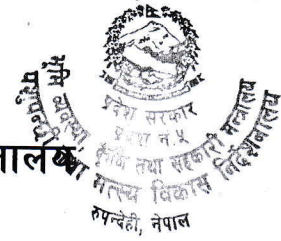 प्रदेश सरकार
प्रदेश न.५
भूमि व्यवस्था कृषि तथा सहकारी मन्त्रालय
पशुपन्छी तथा मत्स्य विकास निर्देशनालय
रुपन्देही, नेपाल